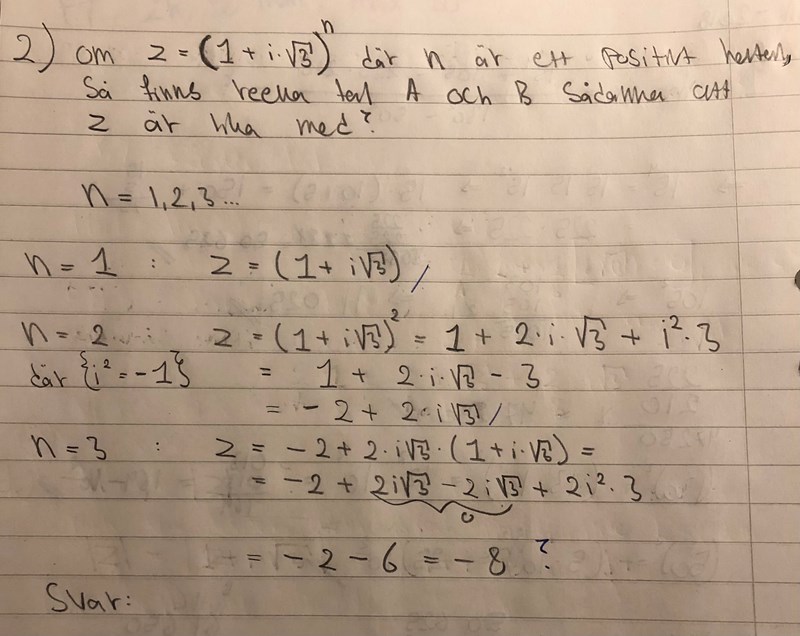 2) om z = (1 + i·√3)^n där n är ett positivt heltal,
Så finns reella tal A och B Sådanna att
z är lika med?
n = 1,2,3...
n = 1 : z = (1 + i√3) /
n = 2 : z = (1 + i√3)^2 = 1 + 2·i·√3 + i^2·3
där {i^2 = -1} = 1 + 2·i·√3 - 3
= -2 + 2·i√3 /
n = 3 : z = -2 + 2·i√3·(1 + i·√3) =
= -2 + 2i√3 - 2i√3 + 2i^2·3
0
= -2 - 6 = -8 ?
Svar: